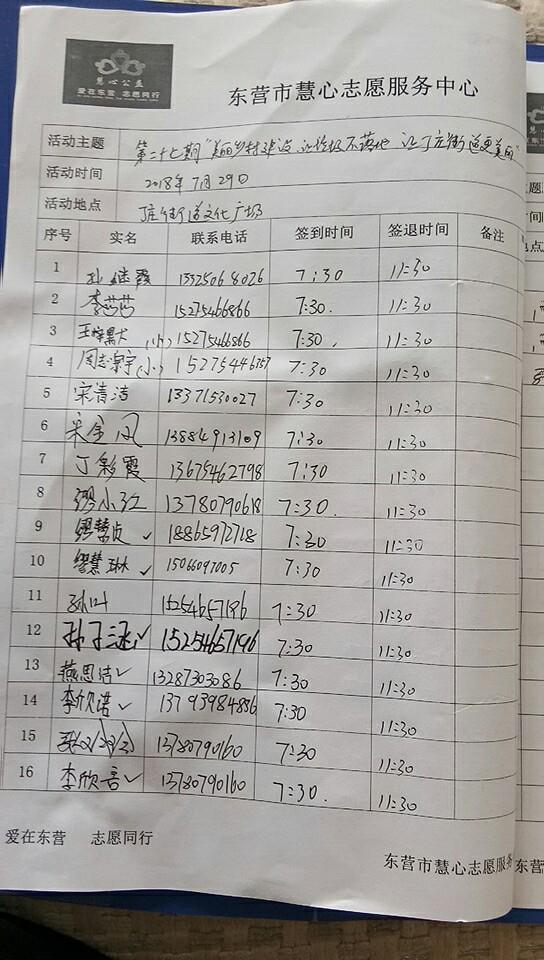 慧心公益
爱在东营 志愿同行
东营市慧心志愿服务中心
活动主题 第二十七期“美丽乡村建设,让垃圾不落地 让丁庄街道更美丽”
活动时间 2018年7月29日
活动地点 丁庄街道文化广场
序号 实名 联系电话 签到时间 签退时间 备注
1 孙继霞 13325068026 7:30 11:30
2 李芸芸 15275466866 7:30. 11:30
3 王梓 (小) 15275466866 7:30. 11:30
4 周志宇(小) 15275446757 7:30 11:30
5 宋清洁 13371530027 7:30 11:30
6 宋金凤 13884913109 7:30 11:30
7 丁彩霞 13675462798 7:30 11:30
8 缪小红 13780790618 7:30. 11:30
9 缪慧贞✓ 18865972718 7:30 11:30
10 缪慧琳✓ 15066097005 7:30 11:30
11 孙叶 15254657196 7:30 11:30
12 孙子涵✓ 15254657196 7:30 11:30
13 燕思洁✓ 13287303086 7:30 11:30
14 李欣诺✓ 13793984886 7:30 11:30
15 13780790160 7:30 11:30
16 李欣音✓ 13780790160 7:30. 11:30
爱在东营 志愿同行
东营市慧心志愿服务
东营